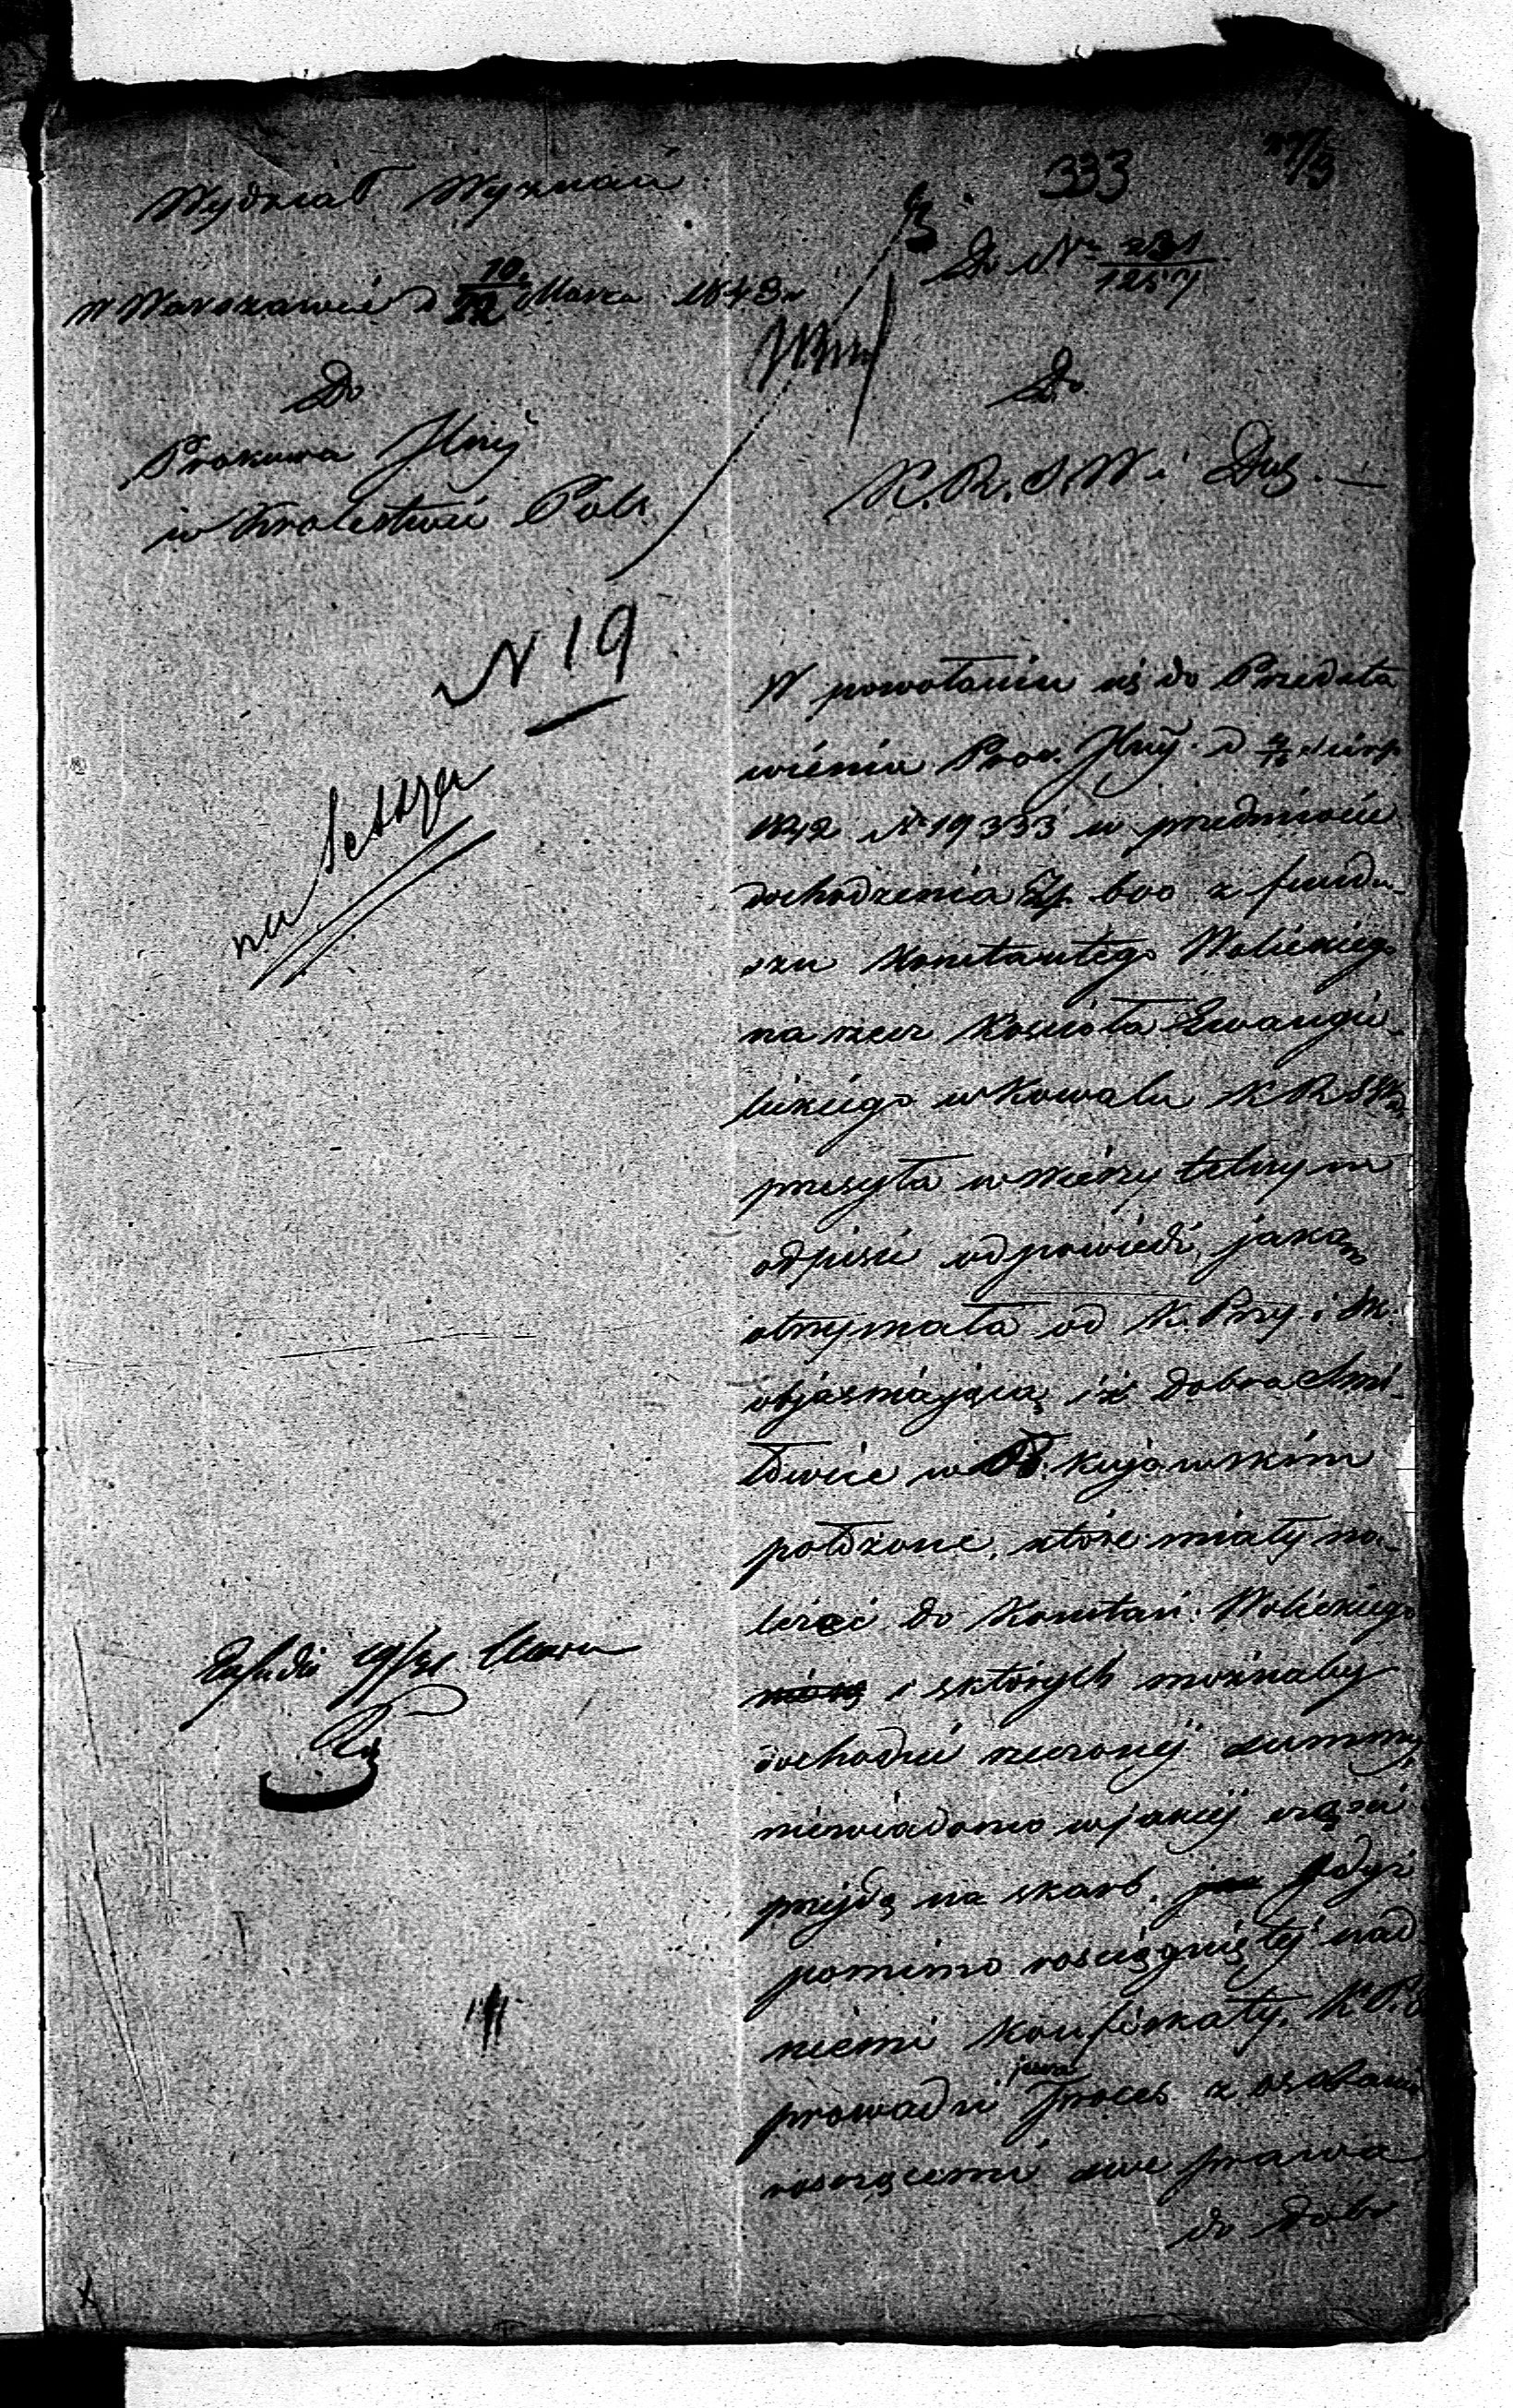 333
Wydział Wyznań
Do Nr 231/1257
w Warszawie d 10/22 Marca 1843 r
Do
Prokura Jlnéj
w Królestwie Pols.
Do
K. R. S. W. i Duch.
N 19
W powołaniu się do Przedsta
wienia Prok. Jlnéj d 4/16 Sierp.
1842 Nr 19333 w przedmiocie
dochodzenia Złp. 600 z fundu-
szu Konstantego Wolickiego
na rzecz Kościoła Ewangie-
lickiego w Kowalu K R S W
przesyła w wierzytelnym
odpisie odpowiedź, jaką
otrzymała od K. Przy. i Sk.
objaśniającą iż dobra Smi-
łowice w P. Kujawskim
położone, które miały na-
leżeć do Konstan. Wolickiego
i z których możnaby
dochodzić rzeczonéj summy,
niewiadomo w jakiéj części
przejdą na skarb. gdyż
pomimo rościągniętéj nad
niemi konfiskaty. K. P.
prowadzi proces z osobami
roszczącemi swe prawa
do dóbr
19/31 Marca